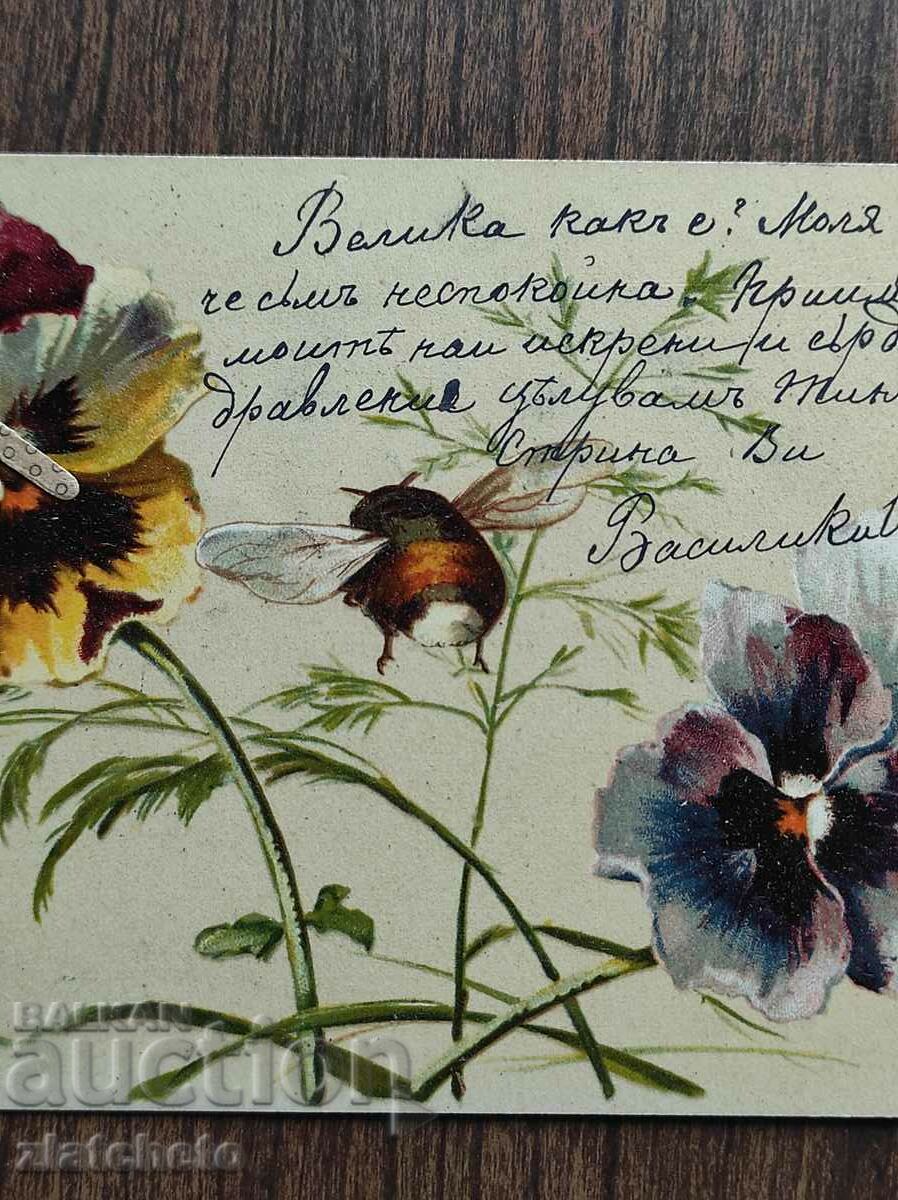 Велика какъ е? Моля
че съмъ неспокойна. Приим
моитѣ наи искрени и сърд
дравление цѣлувамъ
Стрина Ви
Василики
BALKAN
auction
zlatcheto